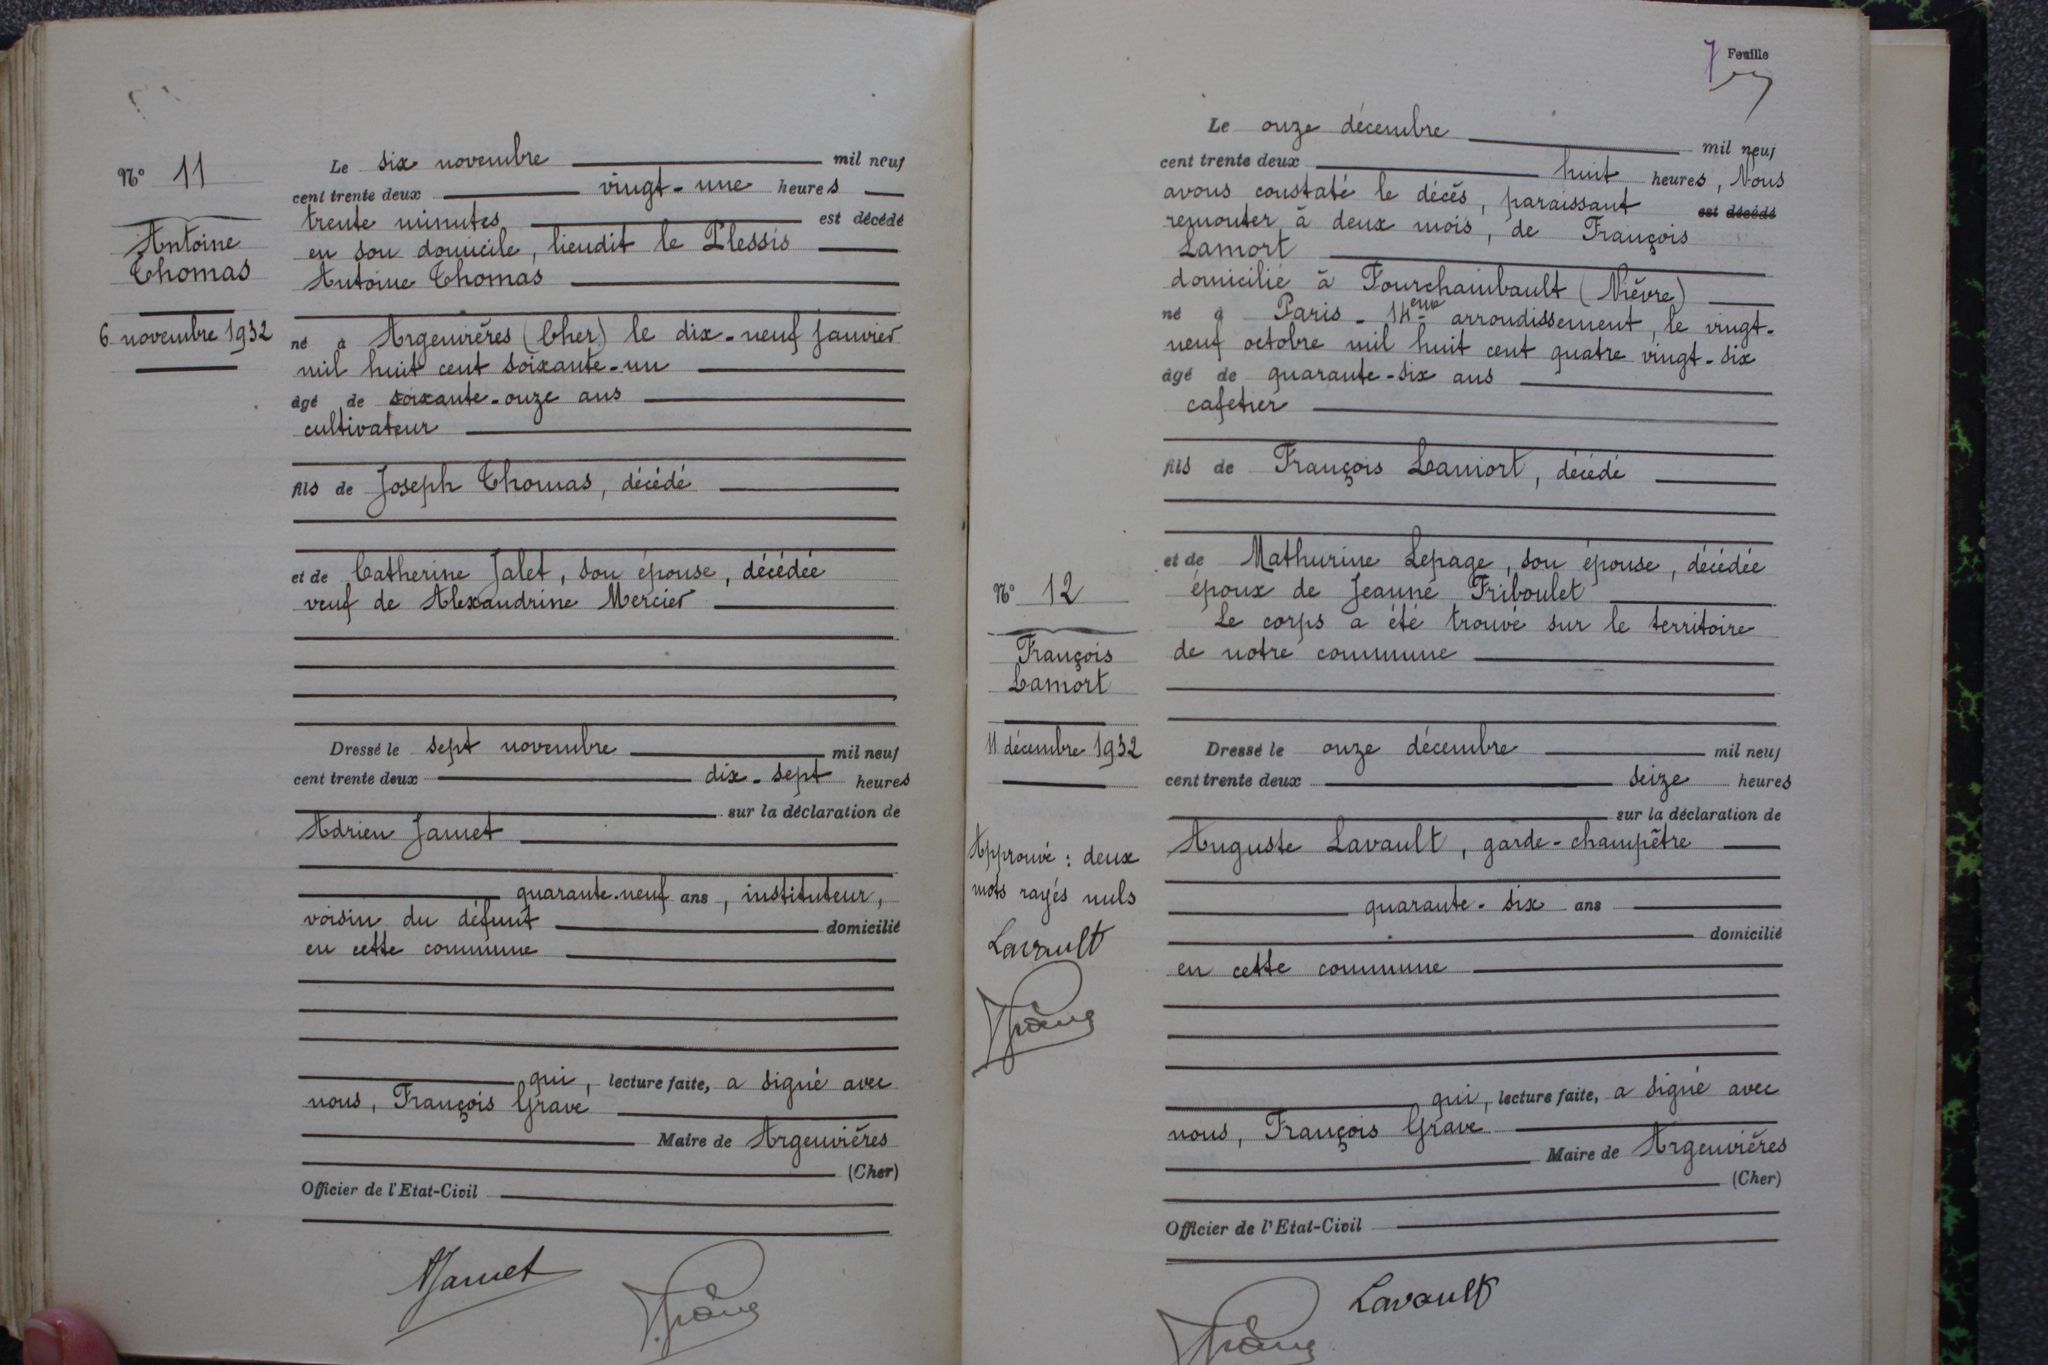 N° 11
Antoine
Thomas
6 novembre 1932
Le six novembre mil neuf
cent trente deux vingt-une heures
trente minutes est décédé
en son domicile, lieudit le Plessis
Antoine Thomas
né à Argenvières (Cher) le dix-neuf janvier
mil huit cent soixante-un
âgé de soixante-onze ans
cultivateur
fils de Joseph Thomas, décédé
et de Catherine Jalet, son épouse, décédée
veuf de Alexandrine Mercier
Dressé le sept novembre mil neuf
cent trente deux dix-sept heures
sur la déclaration de
Adrien Jamet
quarante-neuf ans, instituteur,
voisin du défunt domicilié
en cette commune
qui, lecture faite, a signé avec
nous, François Grave
Maire de Argenvières
(Cher)
Officier de l'Etat-Civil
AJamet
7 Feuille
N° 12
François
Lamort
11 décembre 1932
Approuvé : deux
mots rayés nuls
Lavault
Le onze décembre mil neuf
cent trente deux huit heures, Nous
avons constaté le décès, paraissant est décédé
remonter à deux mois, de François
Lamort
domicilié à Fourchambault (Nièvre)
né à Paris - 14eme arrondissement, le vingt-
neuf octobre mil huit cent quatre vingt-six
âgé de quarante-six ans
cafetier
fils de François Lamort, décédé
et de Mathurine Lepage, son épouse, décédée
époux de Jeanne Friboulet
Le corps a été trouvé sur le territoire
de notre commune
Dressé le onze décembre mil neuf
cent trente deux seize heures
sur la déclaration de
Auguste Lavault, garde-champêtre
quarante-six ans
domicilié
en cette commune
qui, lecture faite, a signé avec
nous, François Grave
Maire de Argenvières
(Cher)
Officier de l'Etat-Civil
Lavault